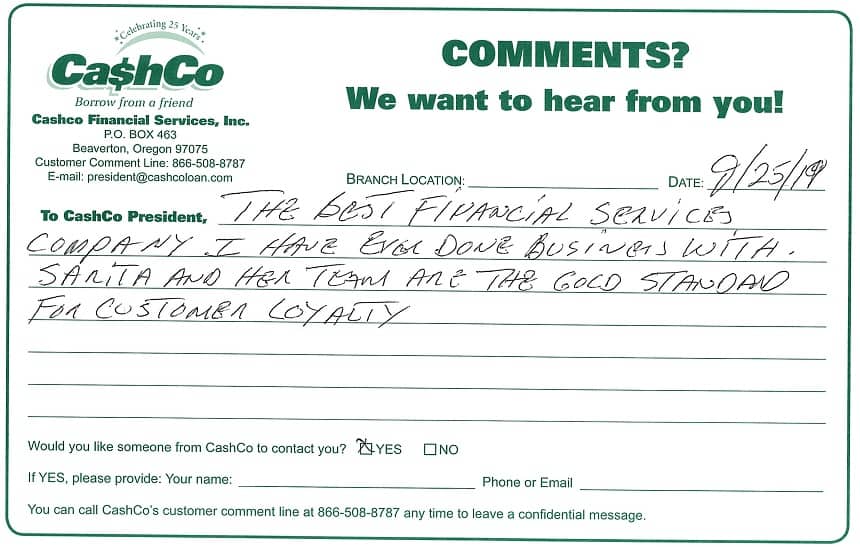 Celebrating 25 Years
Ca$hCo
Borrow from a friend
Cashco Financial Services, Inc.
P.O. BOX 463
Beaverton, Oregon 97075
Customer Comment Line: 866-508-8787
E-mail: president@cashcoloan.com
COMMENTS?
We want to hear from you!
BRANCH LOCATION: DATE: 9/25/19
To CashCo President, THE BEST FINANCIAL SERVICES
COMPANY I HAVE EVER DONE BUSINESS WITH.
SARITA AND HER TEAM ARE THE GOLD STANDAD
FOR CUSTOMER LOYALTY
Would you like someone from CashCo to contact you? YES NO
If YES, please provide: Your name: Phone or Email
You can call CashCo's customer comment line at 866-508-8787 any time to leave a confidential message.